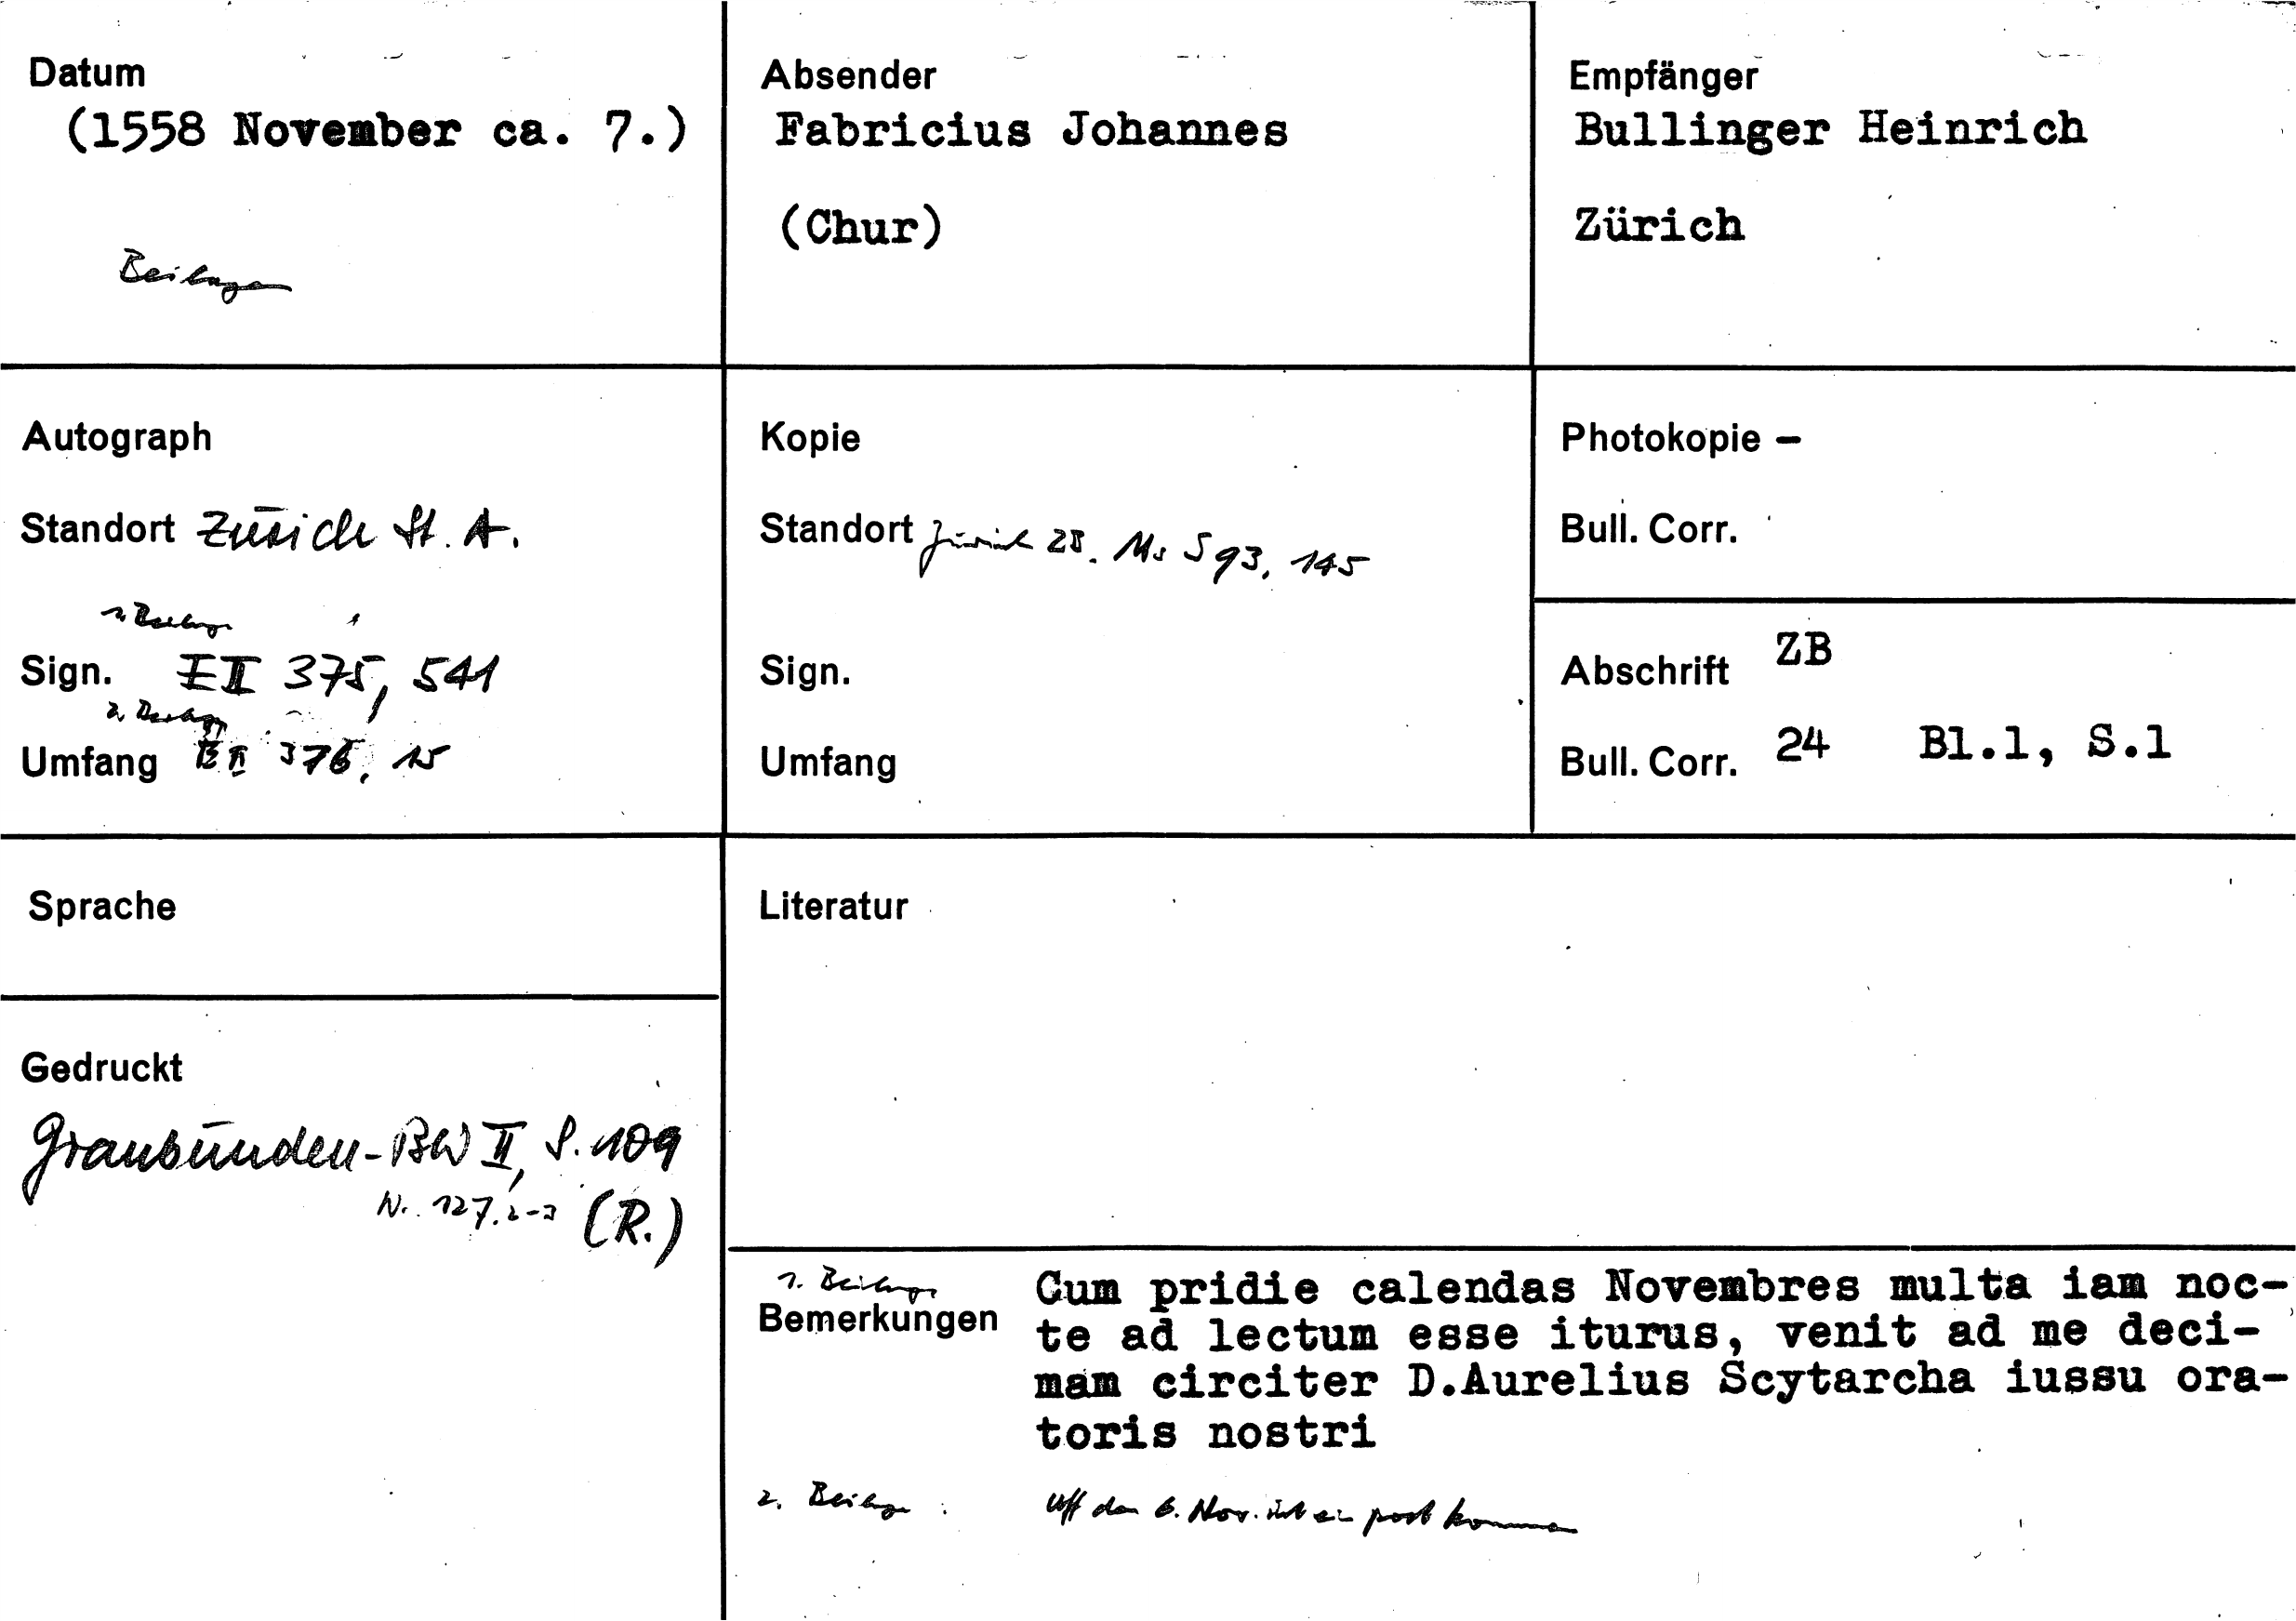 Datum
(1558 November ca. 7.)
Beilagen
Absender
Fabricius Johannes
(Chur)
Empfänger
Bullinger Heinrich
Zürich
Autograph
Standort Zürich St. A.
1. Beilage
Sign. E II 375, 541
2. Beilage
Umfang E II 376, 15
Kopie
Standort Zürich ZB. Ms S 93, 145
Sign.
Umfang
Photokopie –
Bull. Corr.
Abschrift ZB
Bull. Corr. 24 Bl.1, S.1
Sprache
Literatur
Gedruckt
Graubünden-BW II, S. 109
Nr. 127.2-3 (R.)
1. Beilage
Bemerkungen
Cum pridie calendas Novembres multa iam noc-
te ad lectum esse iturus, venit ad me deci-
mam circiter D.Aurelius Scytarcha iussu ora-
toris nostri
2. Beilage : Uff den 6. Nov. ist ein post kommen